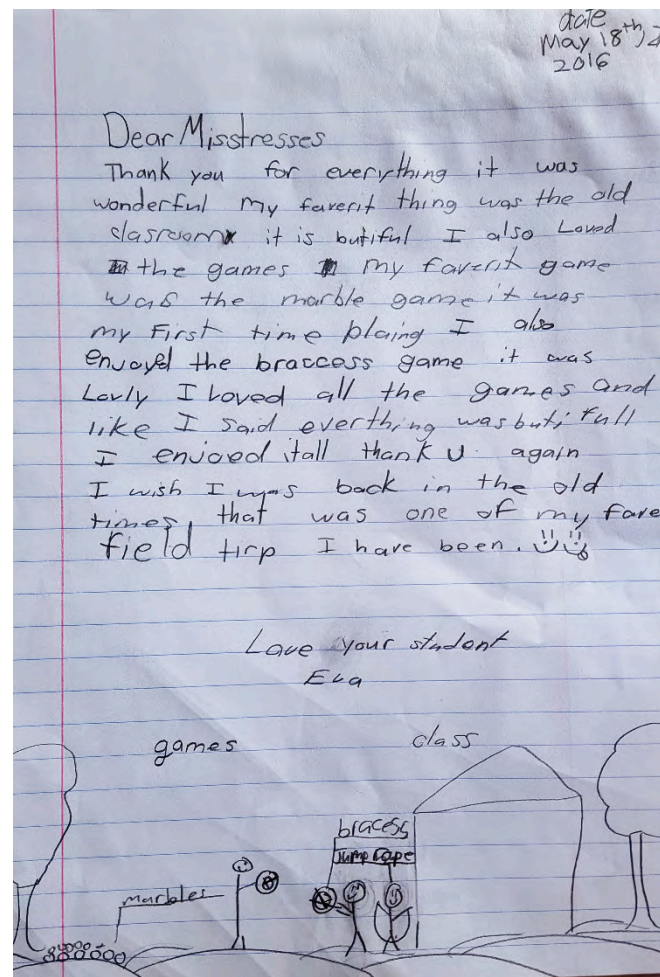 date
May 18th,
2016
Dear Misstresses
Thank you for everything it was
wonderful my faverit thing was the old
clasroom it is butiful I also Loved
the games my faverit game
was the marble game it was
my first time plaing I also
enjoyed the braccess game it was
Lovly I loved all the games and
like I said everthing was buti full
I enjoed it all thank U again
I wish I was back in the old
times, that was one of my fave
field tirp I have been.
Love your student
Eva
games class
bracess
Jump Rope
marbles